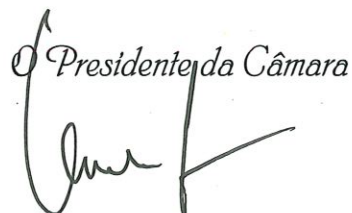 O Presidente da Câmara